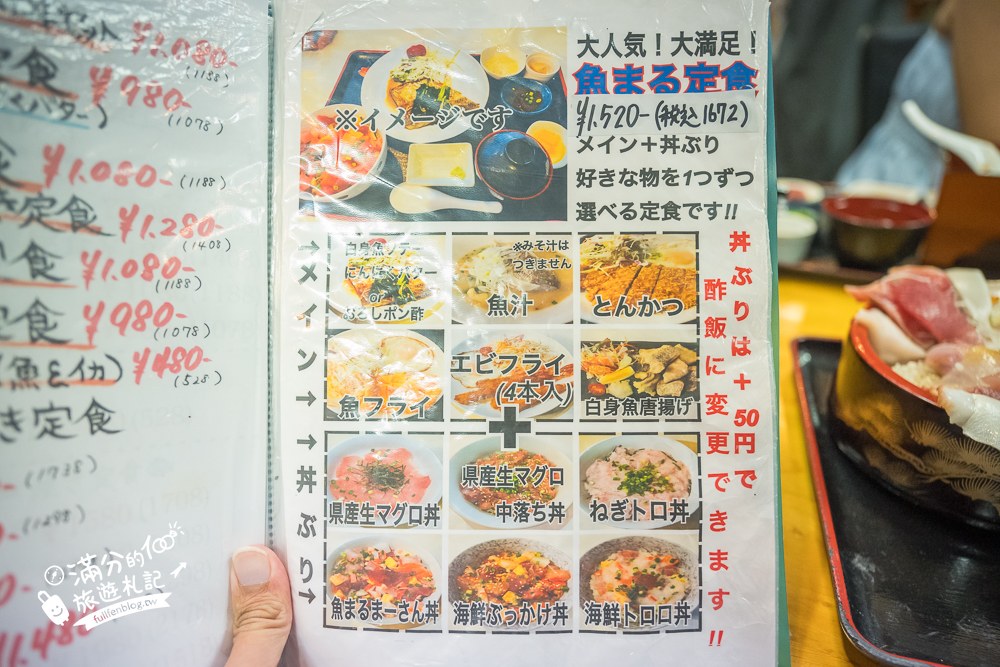 ¥1.080-
(1188)
定食
¥980-
バター)
(1078)
¥1.080-
(1188)
き定食
¥1.280-
(1408)
食
¥1.080-
(1188)
定食
¥980-
(1078)
(魚&イカ)
¥480-
(528)
き定食
(1738)
大人気!大満足!
魚まる定食
¥1.520-(税込1672)
メイン+丼ぶり
好きな物を1つずつ
選べる定食です!!
※イメージです
→メイン→
→丼ぶり→
白身魚ソテー
にんにくバター
or
おろしポン酢
※みそ汁は
つきません
魚汁
とんかつ
魚フライ
エビフライ
(4本入)
白身魚唐揚げ
+
県産生マグロ丼
県産生マグロ
中落ち丼
ねぎトロ丼
魚まるまーさん丼
海鮮ぶっかけ丼
海鮮トロロ丼
丼ぶりは+50円で
酢飯に変更できます!!
滿分的100
旅遊札記
fullfenblog.tw